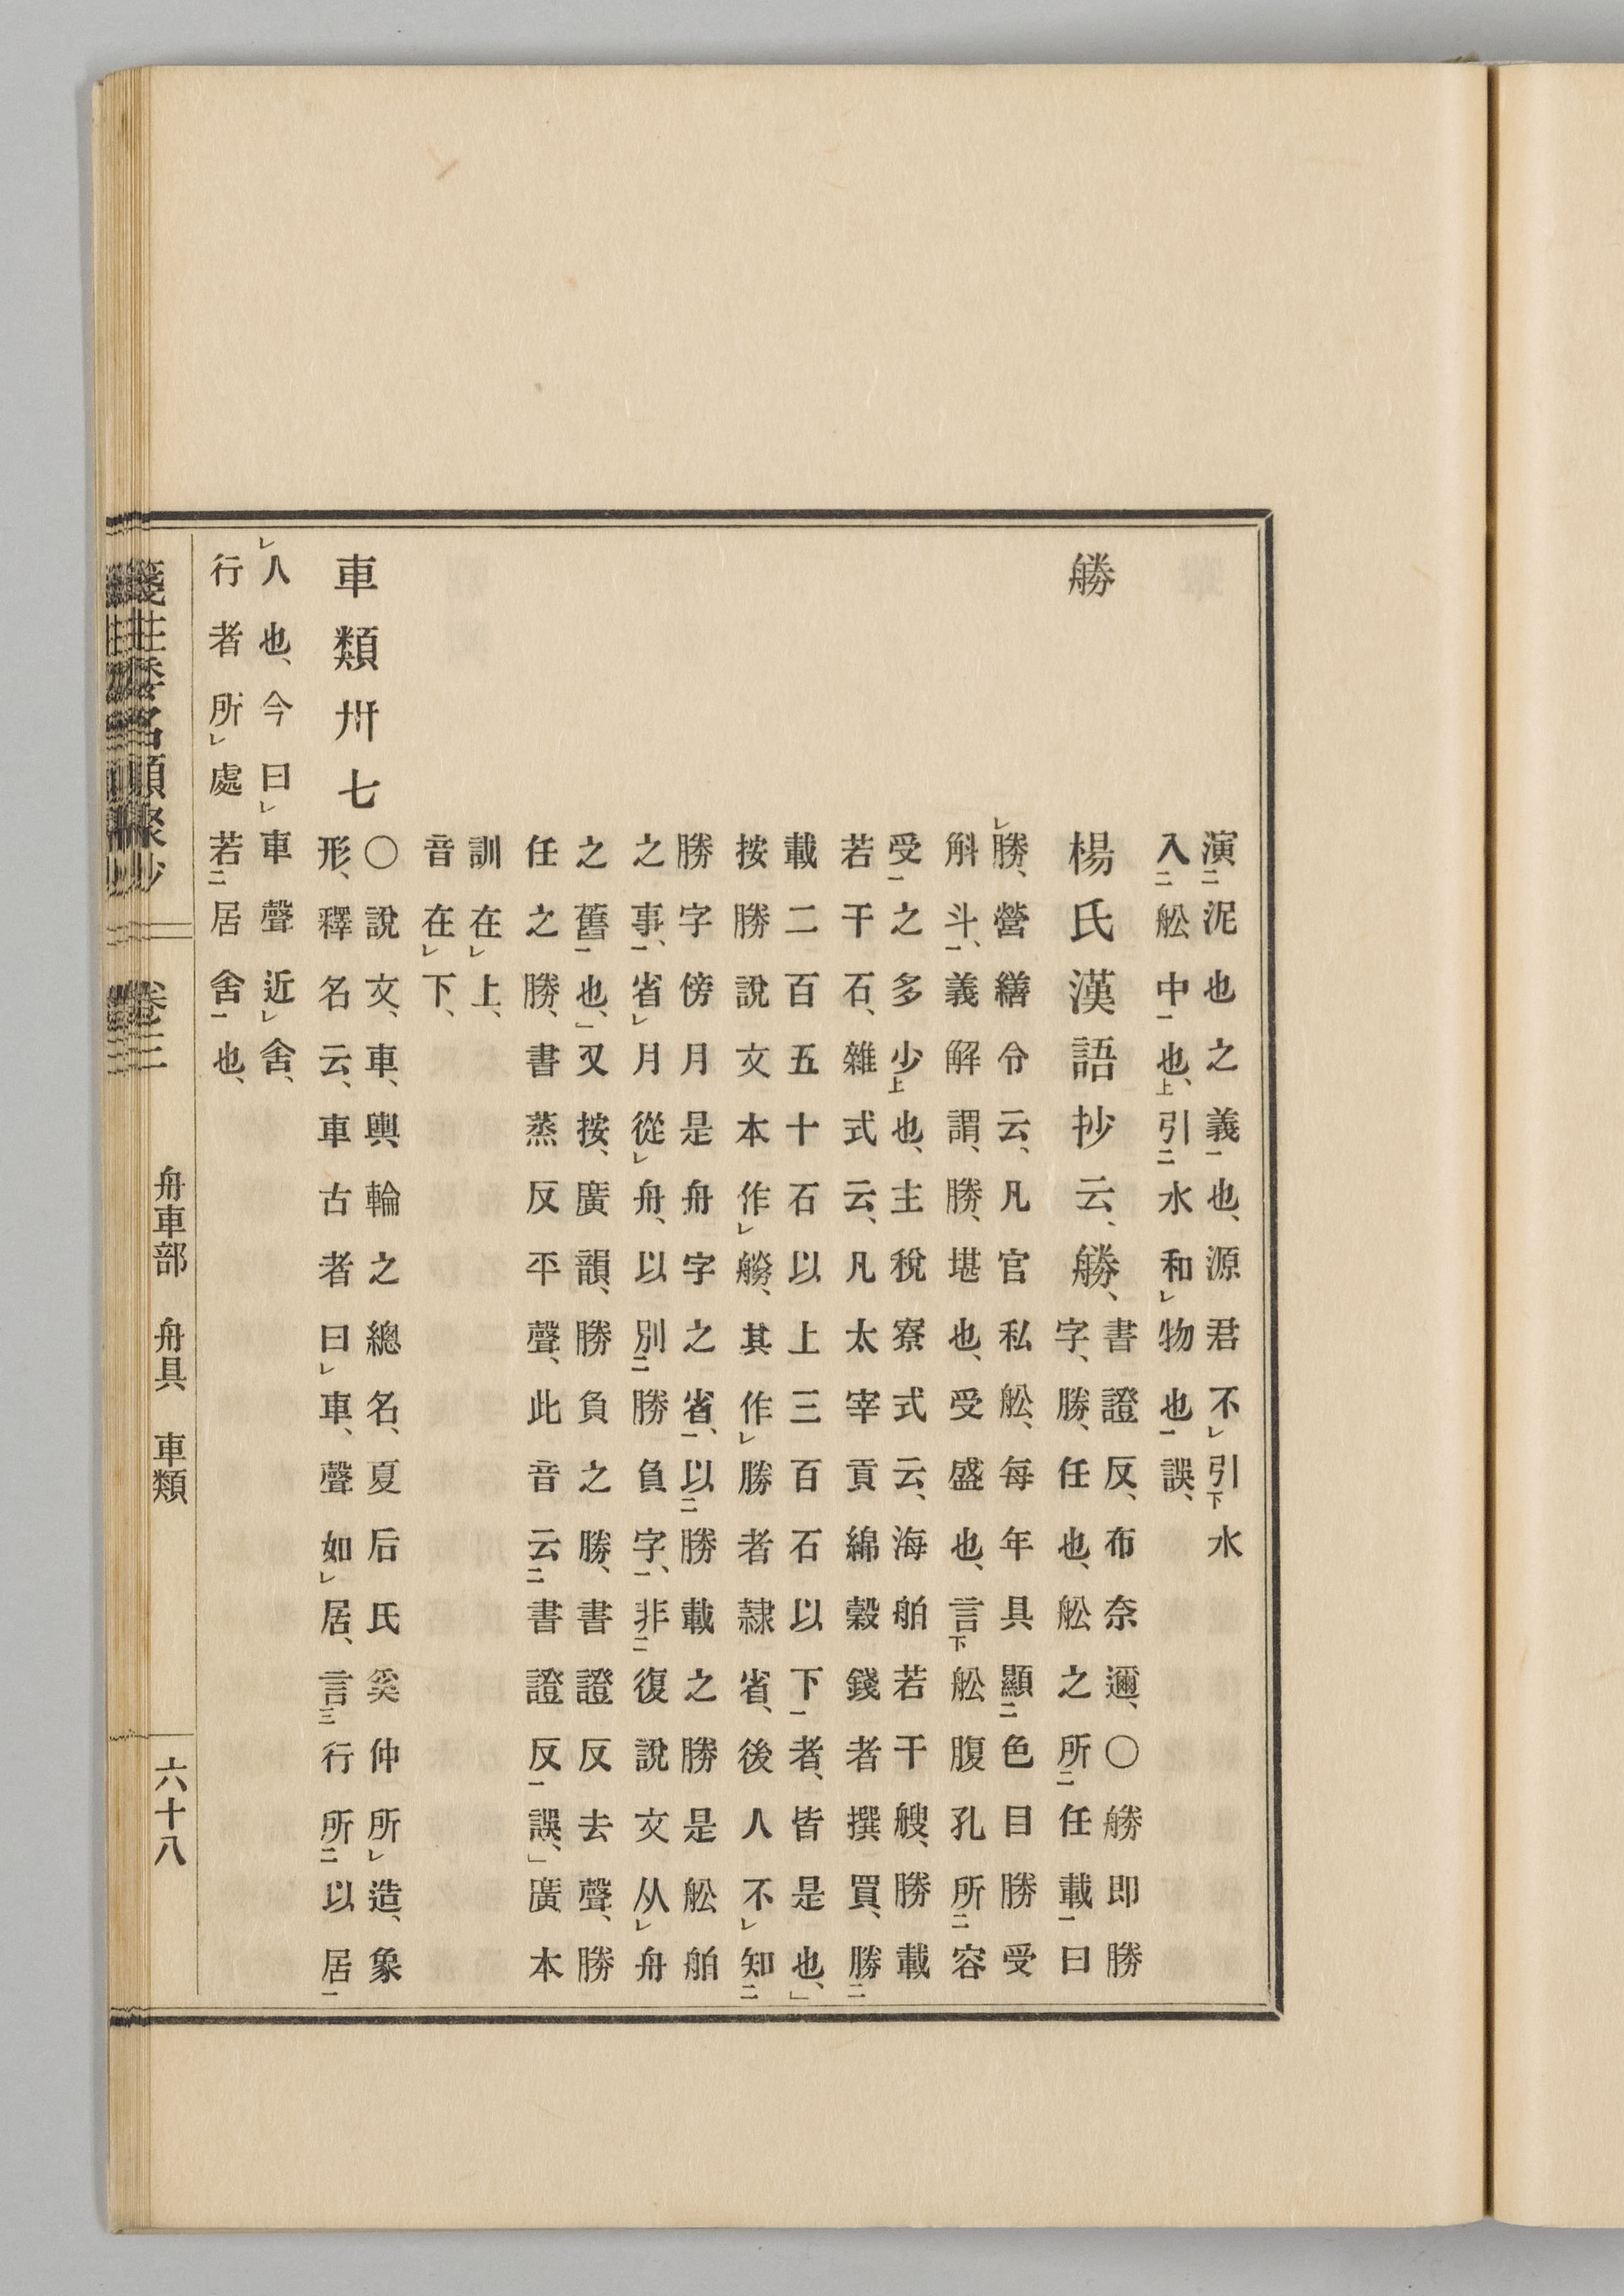 演二泥也之義一也、源君不レ引下水
入二舩中一也、上引二水和レ物也一誤、
艕 楊氏漢語抄云、艕、書證反、布奈邇、○艕即勝
字、勝、任也、舩之所二任載一曰
レ勝、營繕令云、凡官私舩、每年具顯二色目勝受
斛斗一、義解謂、勝、堪也、受盛也、言下舩腹孔所二容
受一之多少上也、主稅寮式云、海舶若干艘、勝載
若干石、雜式云、凡太宰貢綿穀錢者撰買、勝二
載二百五十石以上三百石以下一者、皆是也、」
按勝說文本作レ艕、其作レ勝者隷省、後人不レ知二
勝字傍月是舟字之省一、以二勝載之勝是舩舶
之事一、省レ月從レ舟、以別二勝負字一、非二復說文从レ舟
之舊一也、」又按、廣韻、勝負之勝、書證反去聲、勝
任之勝、書蒸反平聲、此音云二書證反一誤、」廣本
訓在レ上、
音在レ下、
車類卅七
○說文、車、輿輪之總名、夏后氏奚仲所レ造、象
形、釋名云、車古者曰レ車、聲如レ居、言三行所二以居一
レ人也、今曰レ車聲近レ舍、
行者所レ處若二居舍一也、
箋注倭名類聚抄 卷三 舟車部 舟具 車類 六十八